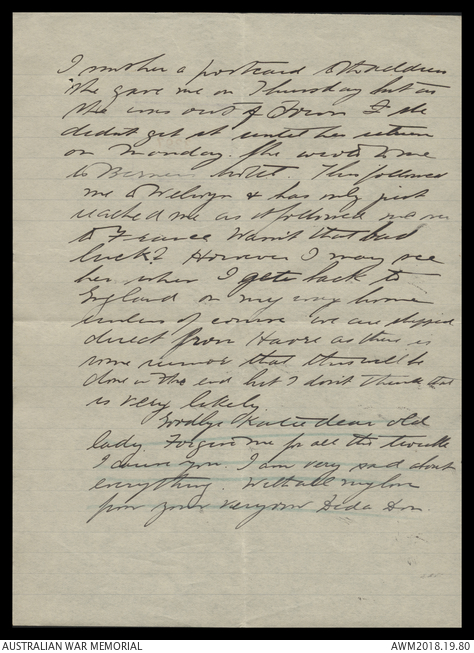 I wrote her a postcard to the address
she gave me on Thursday but as
she was out of Town & she
didn't get it until her return
on Monday. She wrote to me
to Berners hotel. This followed
me to Welwyn & has only just
reached me as it followed me on
to France. Wasn't that bad
luck? However I may see
her when I get back to
England on my way home
unless of course we are shipped
direct from Havre as there is
some rumor that this will be
done in the end but I don't think that
is very likely.
Goodbye Katie dear old
lady. Forgive me for all the trouble
I cause you. I am very sad about
everything. With all my love
from your very own
AUSTRALIAN WAR MEMORIAL
AWM2018.19.80